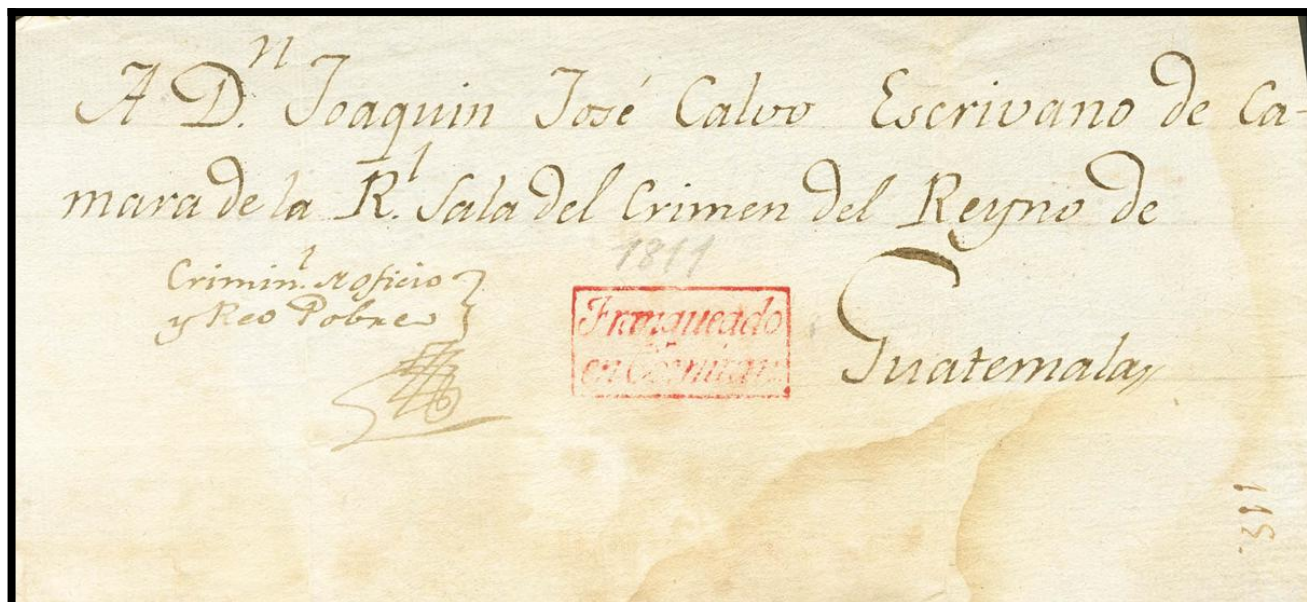 A D.ⁿ Joaquin José Calvo Escrivano de Ca-
mara de la R.ˡ Sala del Crimen del Reyno de
Guatemala
Crimin.ˡ de oficio
y Reo Pobre
1811
Franqueado
en Comitan
311